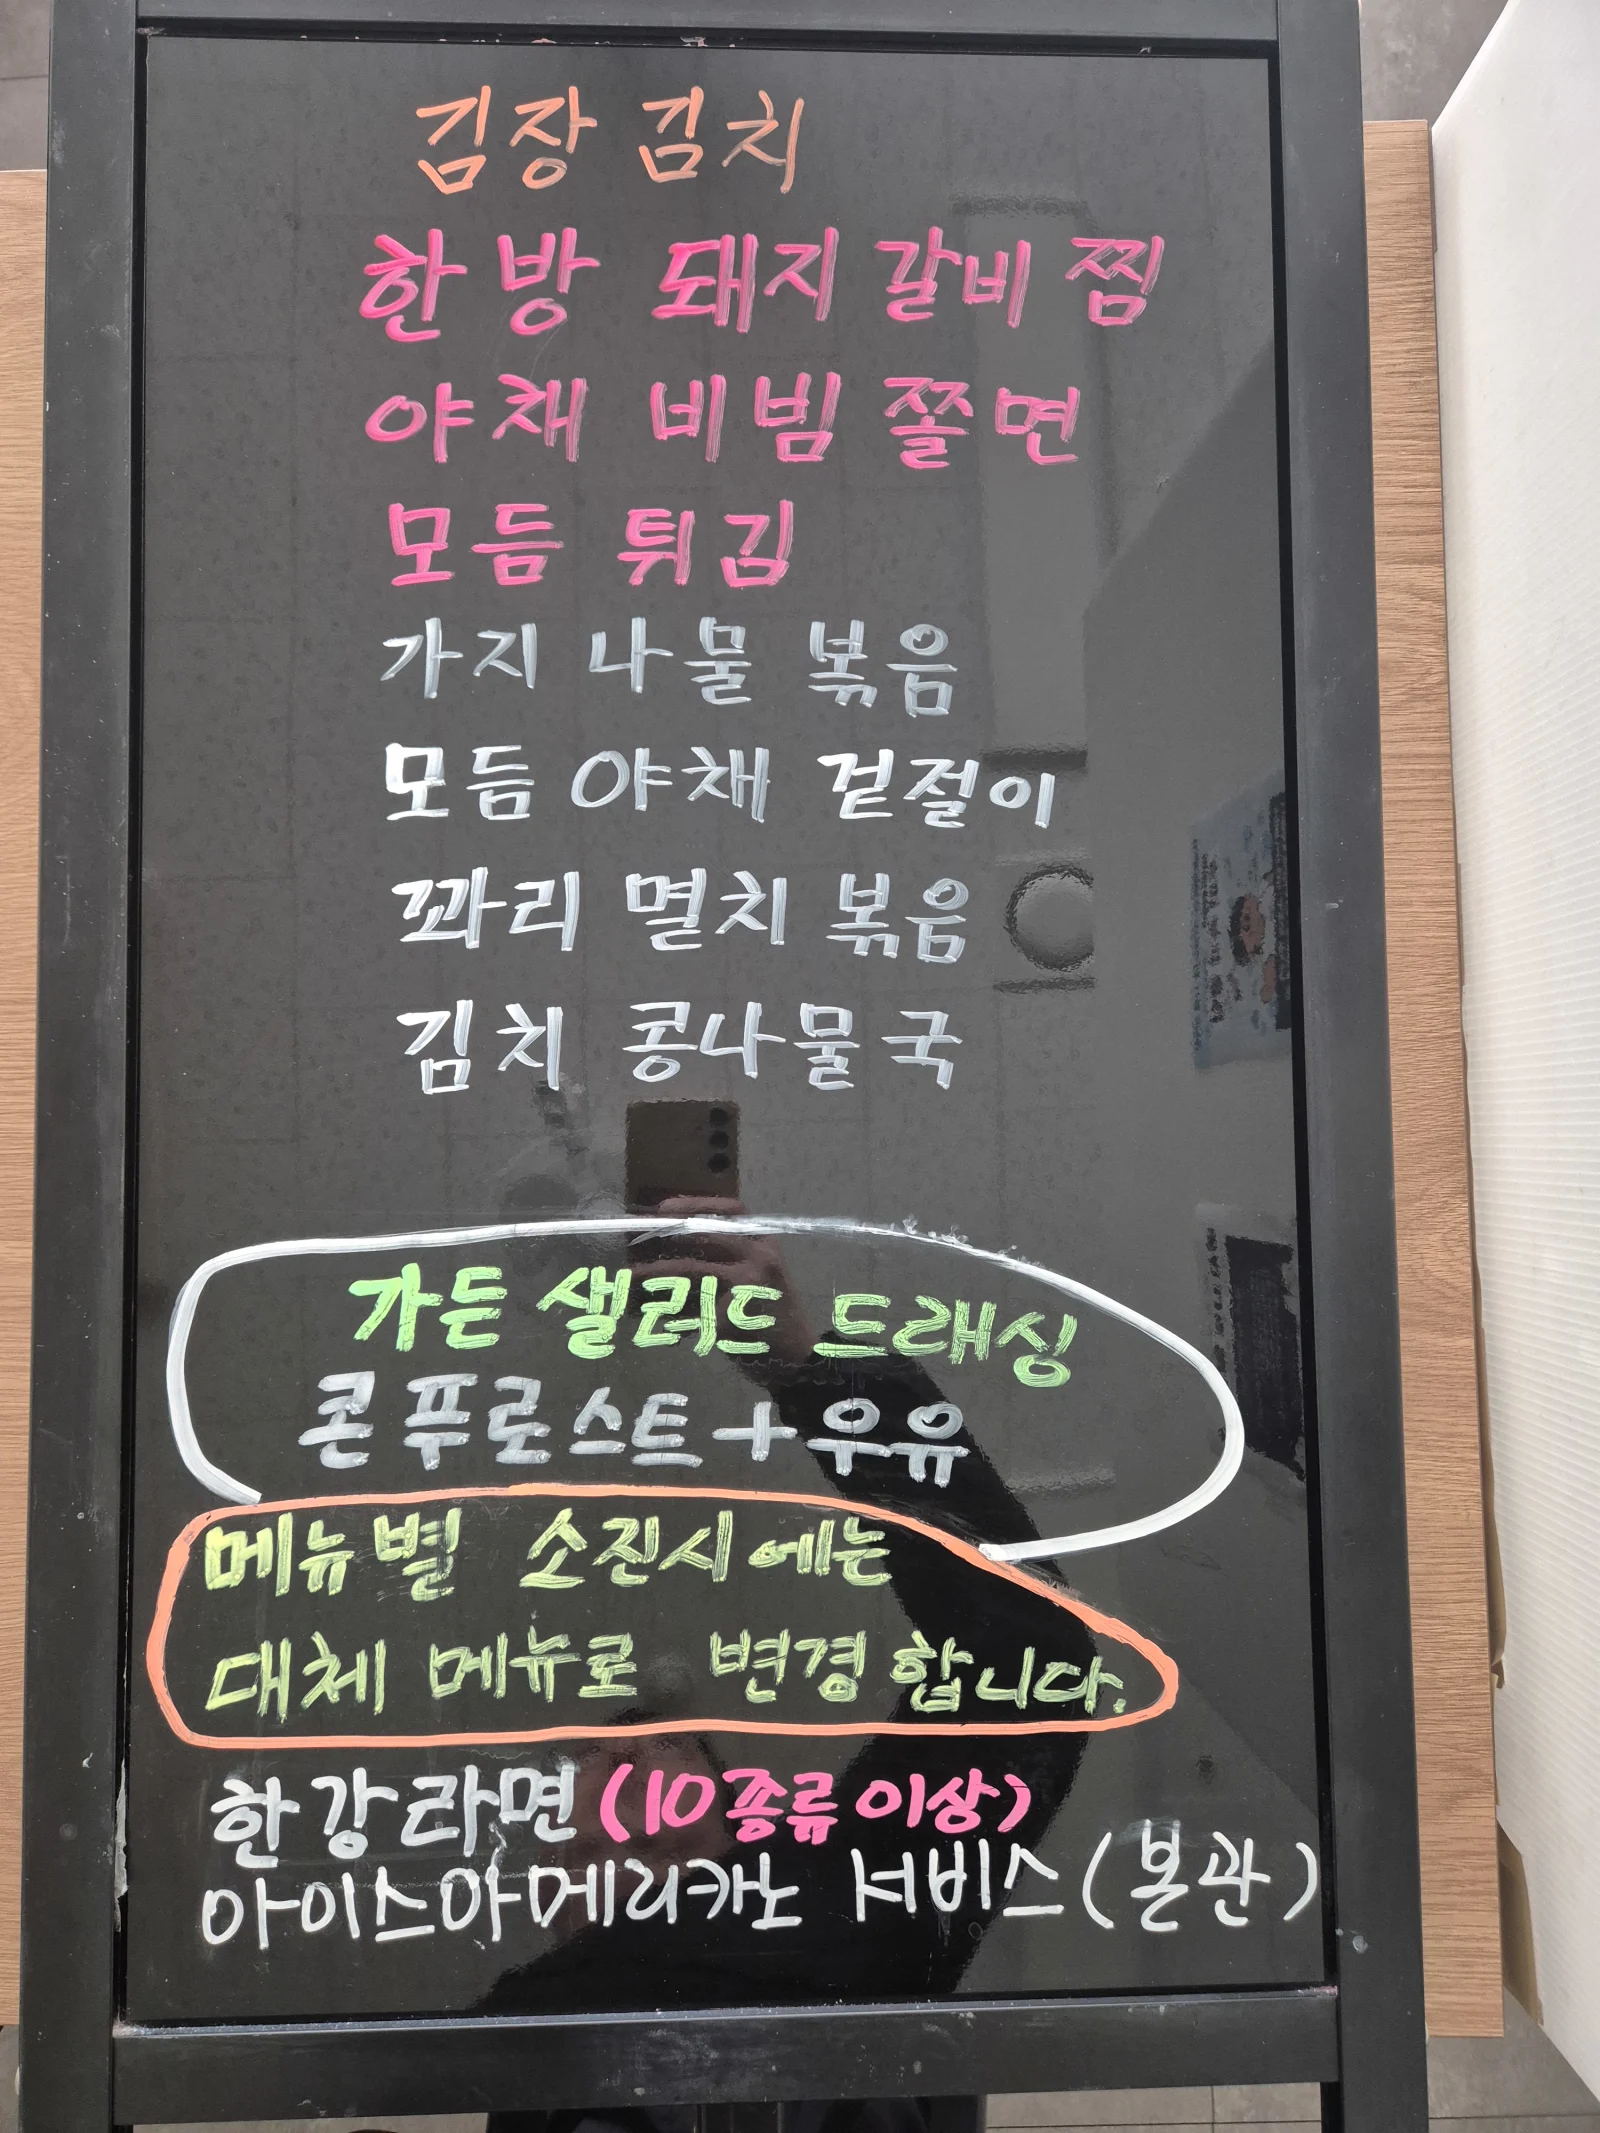 김장 김치
한방 돼지갈비찜
야채 비빔쫄면
모듬 튀김
가지 나물 볶음
모듬 야채 겉절이
꽈리 멸치 볶음
김치 콩나물국
가든 샐러드 드래싱
콘푸로스트+우유
메뉴별 소진시에는
대체 메뉴로 변경합니다.
한강라면 (10종류이상)
아이스아메리카노 서비스 (본관)